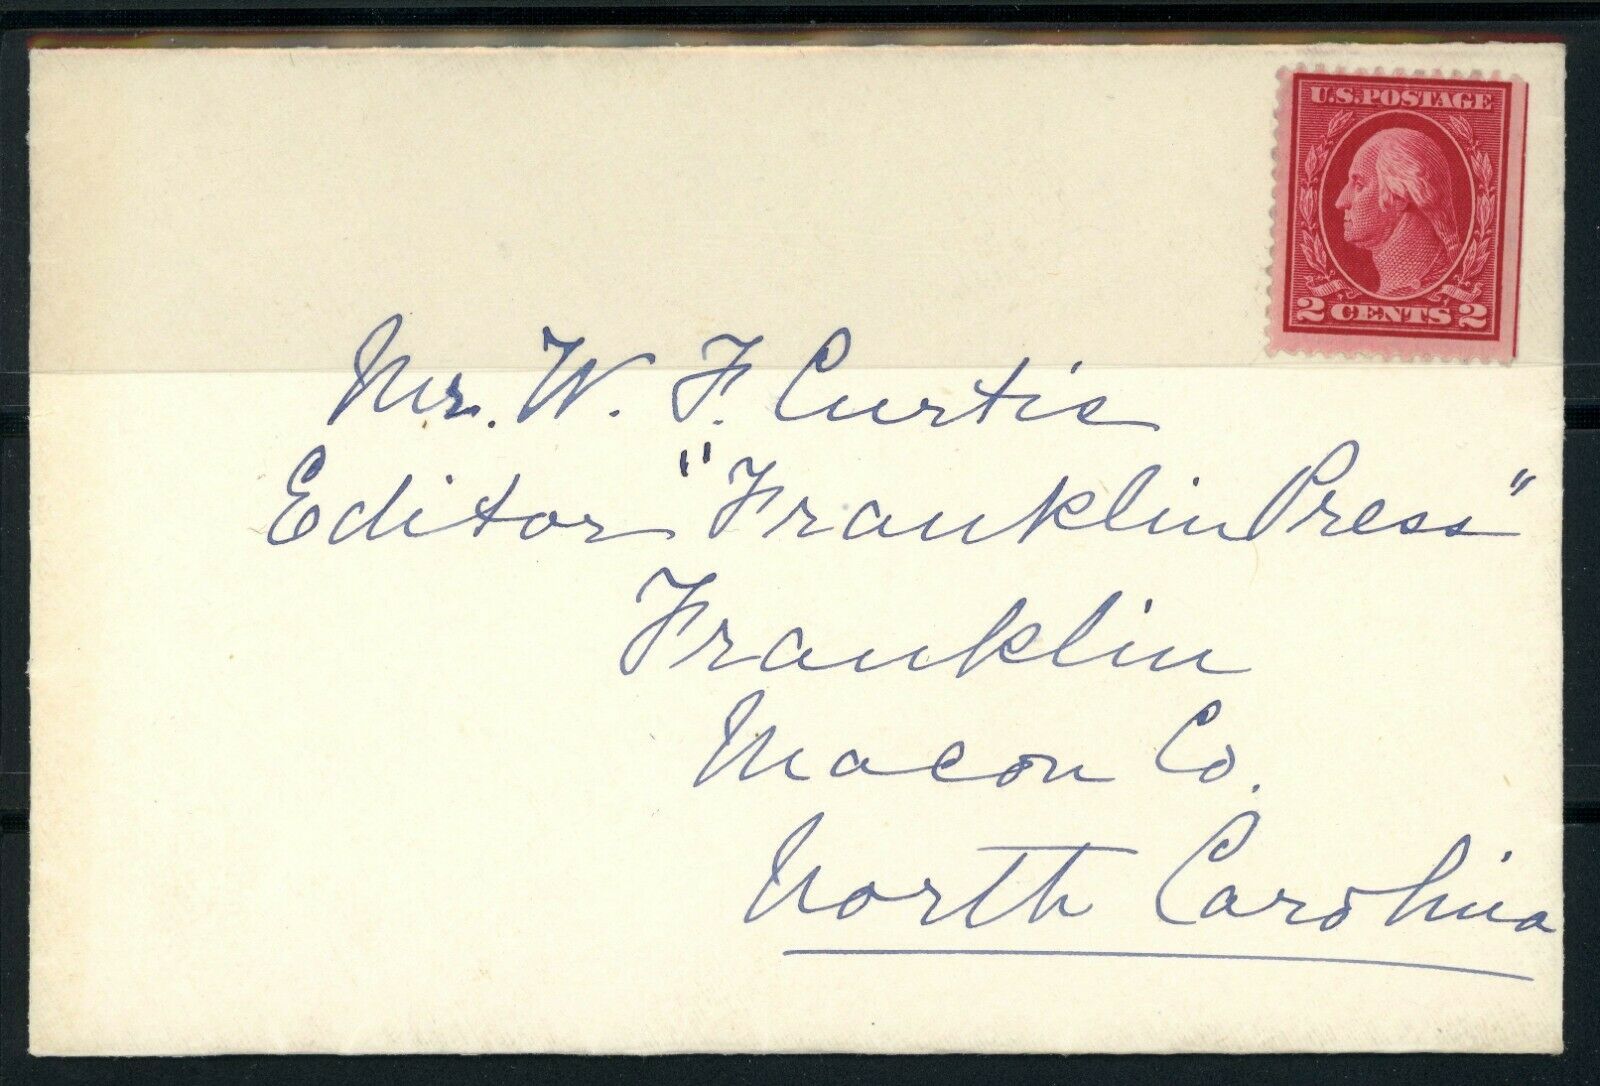 U.S.POSTAGE
2 CENTS 2
Mr. W. F. Curtis
Editor "Franklin Press"
Franklin
Macon Co.
North Carolina